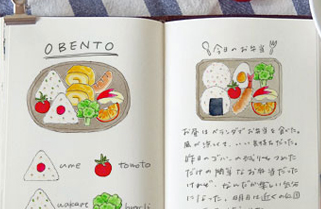 OBENTO
ume
tomato
wakame
今日のお弁当
お昼はベランダでお弁当を食べた。
風が涼しくて、いい気持ちだった。
昨日のゴハンの残りをつめた
だけの簡単なお弁当だった
けれど、なんだか楽しい気分
になった。明日は近くの公園